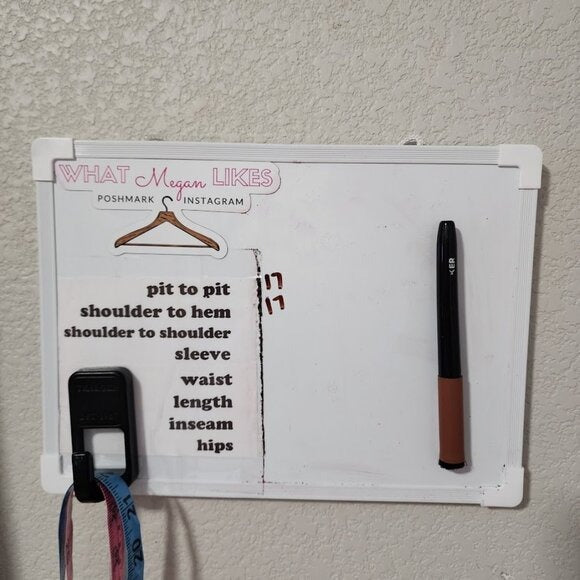 WHAT Megan LIKES
POSHMARK INSTAGRAM
pit to pit 17
shoulder to hem 17
shoulder to shoulder
sleeve
waist
length
inseam
hips
KER
20